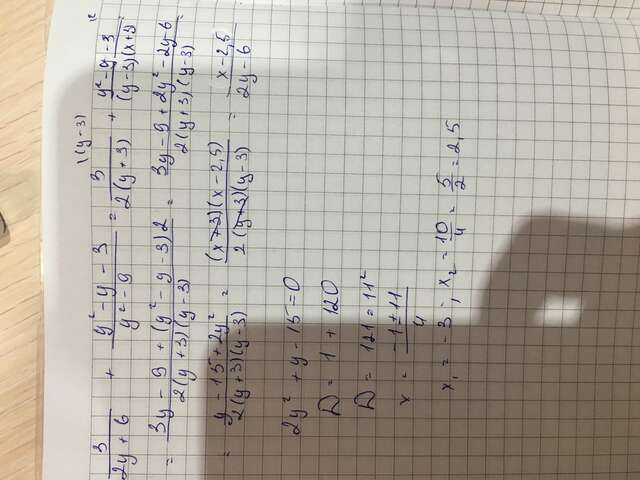 |(y-3) |2
3/(2y+6) + (y²-y-3)/(y²-9) = 3/(2(y+3)) + (y²-y-3)/((y-3)(x+3)) =
= (3y-9+(y²-y-3)2)/(2(y+3)(y-3)) = (3y-9+2y²-2y-6)/(2(y+3)(y-3)) =
= (y-15+2y²)/(2(y+3)(y-3)) = ((x+3)(x-2,5))/(2(y+3)(y-3)) = (x-2,5)/(2y-6)
2y²+y-15=0
D = 1 + 120
D = 121 = 11²
x = (-1±11)/4
x₁ = -3 ; x₂ = 10/4 = 5/2 = 2,5